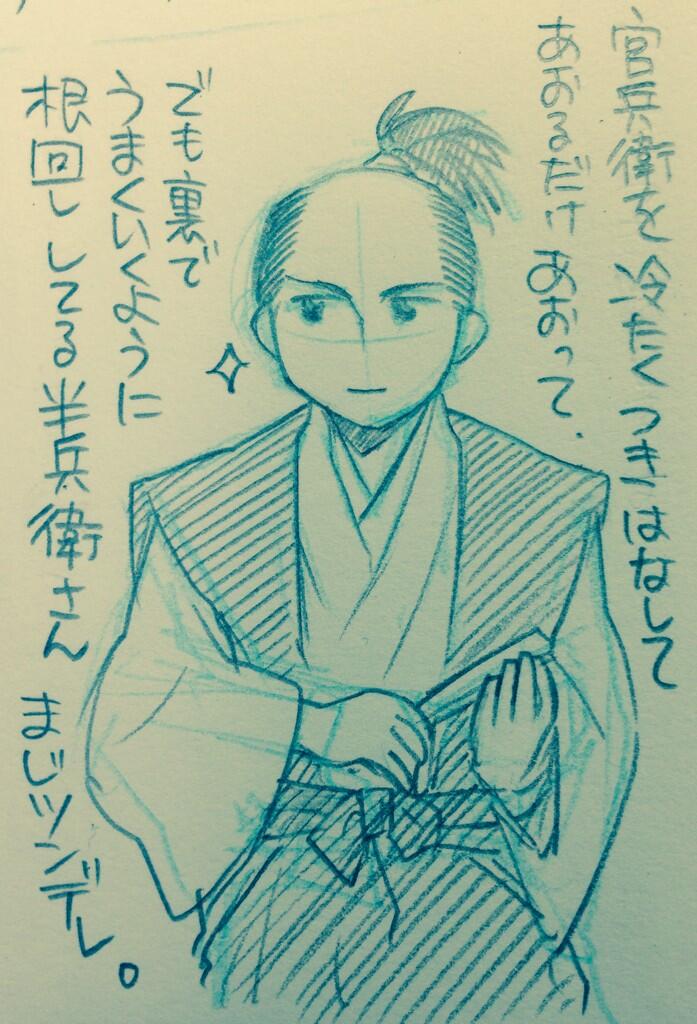 官兵衛を冷たくつきはなして
あおるだけあおって、
でも裏で
うまくいくように
根回ししてる半兵衛さん まじツンデレ。